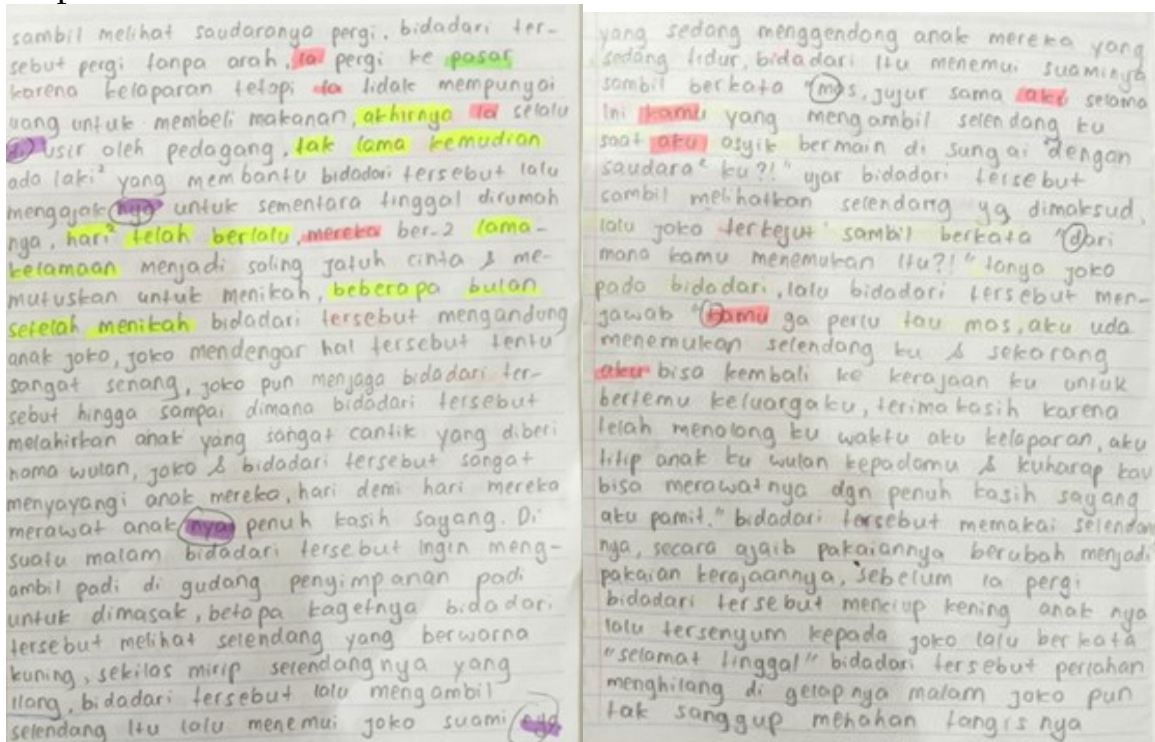 sambil melihat saudaranya pergi, bidadari ter-
sebut pergi tanpa arah, ia pergi ke pasar
karena kelaparan tetapi ia tidak mempunyai
uang untuk membeli makanan, akhirnya ia selalu
di usir oleh pedagang, tak lama kemudian
ada laki² yang membantu bidadari tersebut lalu
mengajak nya untuk sementara tinggal dirumah
nya, hari² telah berlalu, mereka ber-2 lama-
kelamaan menjadi saling jatuh cinta & me-
mutuskan untuk menikah, beberapa bulan
setelah menikah bidadari tersebut mengandung
anak joko, joko mendengar hal tersebut tentu
sangat senang, joko pun menjaga bidadari ter-
sebut hingga sampai dimana bidadari tersebut
melahirkan anak yang sangat cantik yang diberi
nama wulan, joko & bidadari tersebut sangat
menyayangi anak mereka, hari demi hari mereka
merawat anak nya penuh kasih sayang. Di
suatu malam bidadari tersebut ingin meng-
ambil padi di gudang penyimpanan padi
untuk dimasak, betapa kagetnya bidadari
tersebut melihat selendang yang berwarna
kuning, sekilas mirip selendang nya yang
ilang, bidadari tersebut lalu mengambil
selendang itu lalu menemui joko suami nya
yang sedang menggendong anak mereka yang
sedang tidur, bidadari itu menemui suaminya
sambil berkata "mas, jujur sama aku selama
ini kamu yang mengambil selendang ku
saat aku asyik bermain di sungai dengan
saudara² ku?!" ujar bidadari tersebut
sambil melihatkan selendang yg dimaksud,
lalu joko terkejut sambil berkata "dari
mana kamu menemukan itu?!" tanya joko
pada bidadari, lalu bidadari tersebut men-
jawab "kamu ga perlu tau mas, aku uda
menemukan selendang ku & sekarang
aku bisa kembali ke kerajaan ku untuk
bertemu keluargaku, terima kasih karena
telah menolong ku waktu aku kelaparan, aku
titip anak ku wulan kepadamu & kuharap kau
bisa merawatnya dgn penuh kasih sayang
aku pamit." bidadari tersebut memakai selendang
nya, secara ajaib pakaiannya berubah menjadi
pakaian kerajaannya, sebelum ia pergi
bidadari tersebut mencium kening anak nya
lalu tersenyum kepada joko lalu berkata
"selamat tinggal" bidadari tersebut perlahan
menghilang di gelap nya malam joko pun
tak sanggup menahan tangis nya